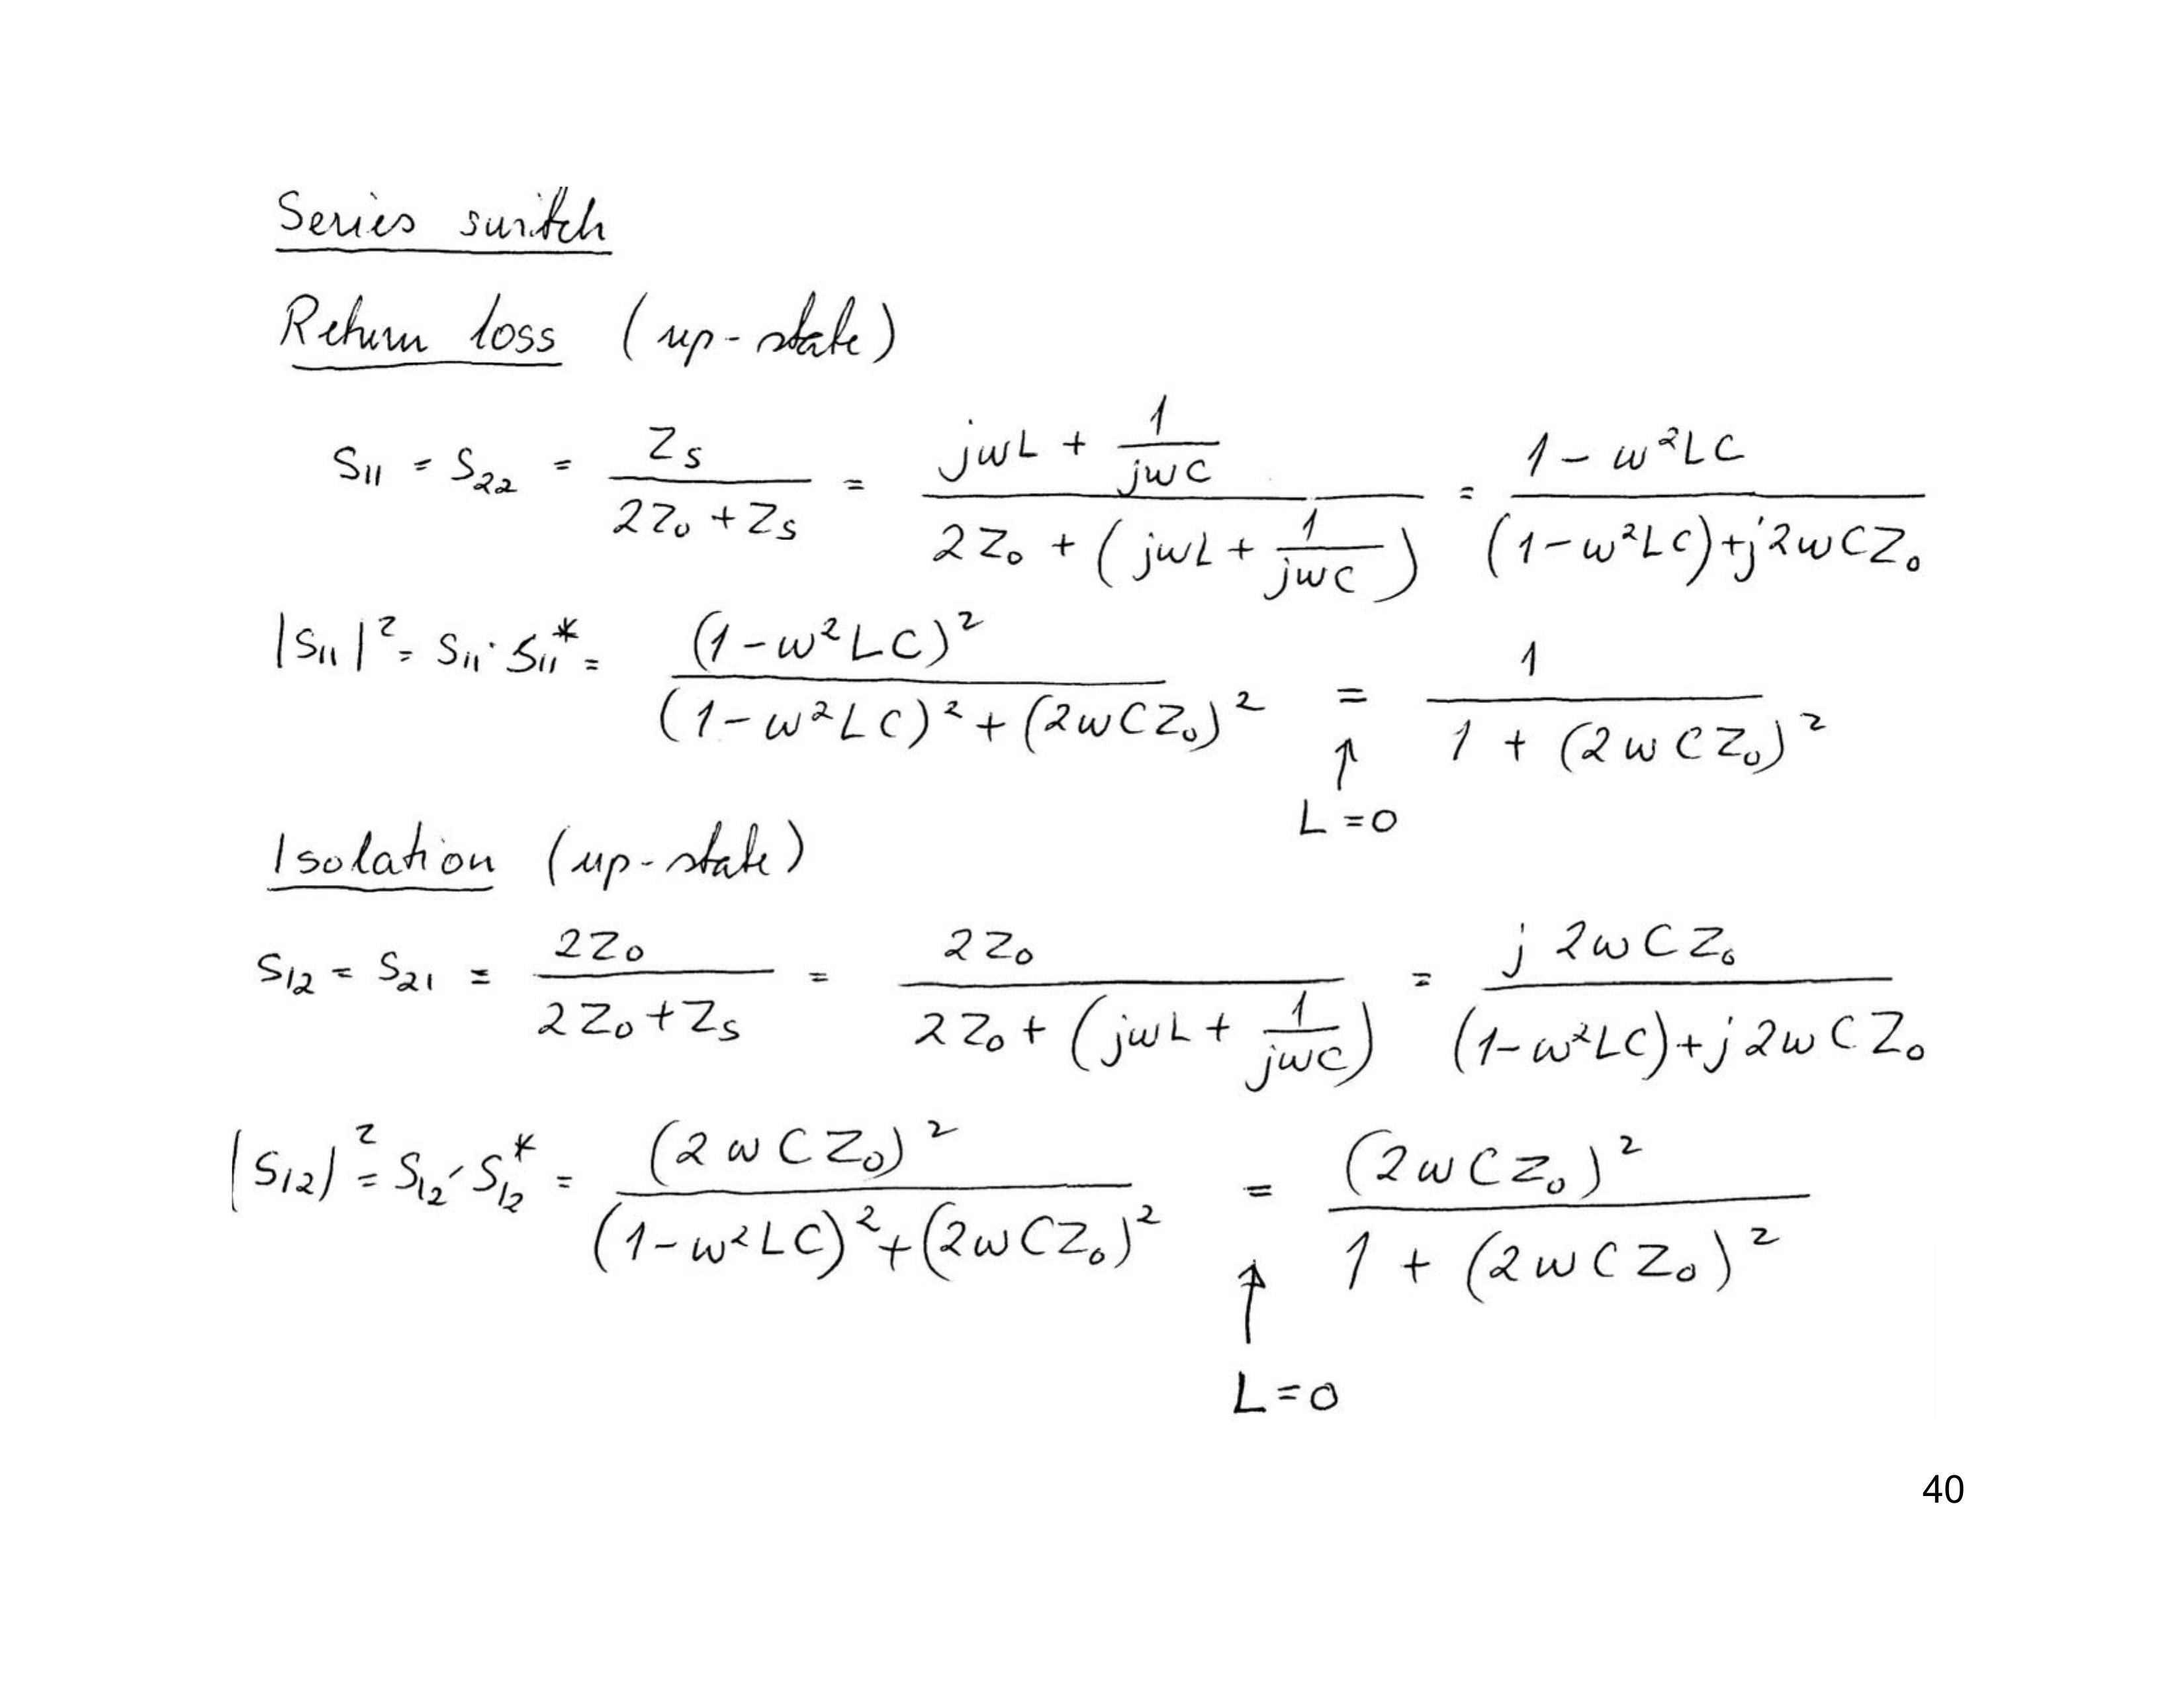 Series switch
Return loss (up-state)
S₁₁ = S₂₂ = Zs / (2Z₀ + Zs) = (jωL + 1/(jωC)) / (2Z₀ + (jωL + 1/(jωC))) = (1 - ω²LC) / ((1 - ω²LC) + j2ωCZ₀)
|S₁₁|² = S₁₁ · S₁₁* = (1 - ω²LC)² / ((1 - ω²LC)² + (2ωCZ₀)²) = 1 / (1 + (2ωCZ₀)²)
↑
L = 0
Isolation (up-state)
S₁₂ = S₂₁ = 2Z₀ / (2Z₀ + Zs) = 2Z₀ / (2Z₀ + (jωL + 1/(jωC))) = j2ωCZ₀ / ((1 - ω²LC) + j2ωCZ₀)
|S₁₂|² = S₁₂ · S₁₂* = (2ωCZ₀)² / ((1 - ω²LC)² + (2ωCZ₀)²) = (2ωCZ₀)² / (1 + (2ωCZ₀)²)
↑
L = 0
40